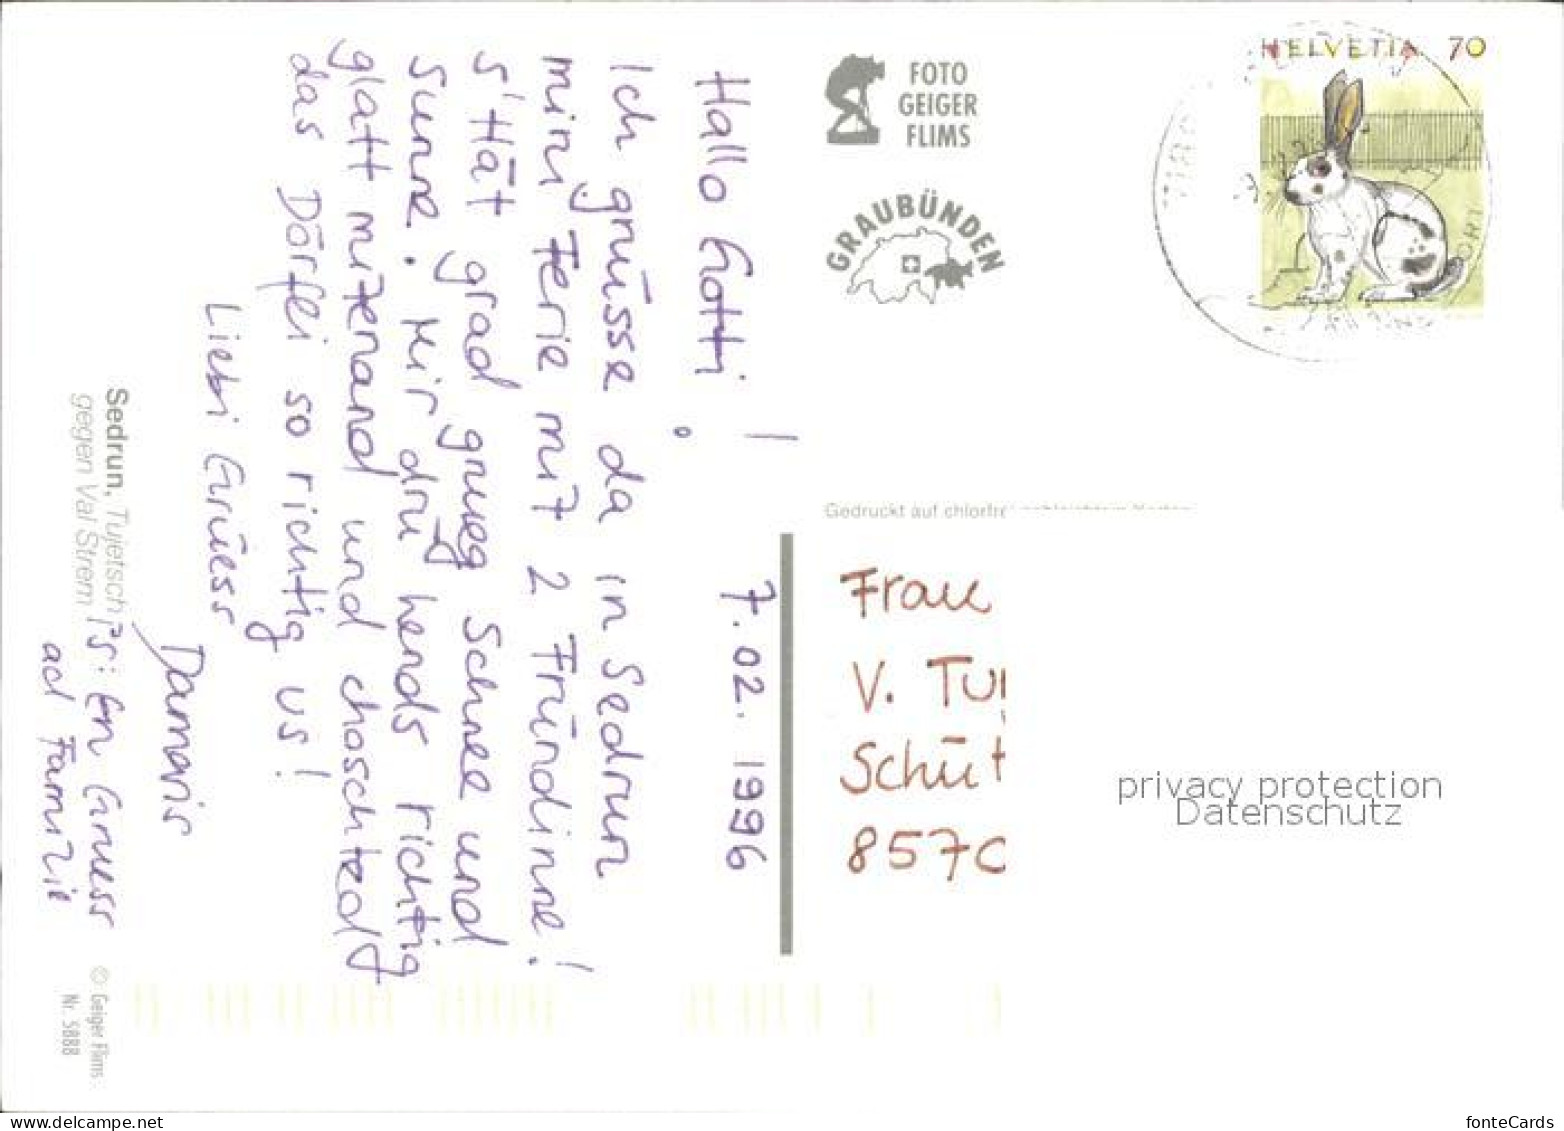 HELVETIA 70
FOTO
GEIGER
FLIMS
GRAUBÜNDEN
Gedruckt auf
7.02.1996
Hallo Gotti!
Ich grüsse da in Sedrun
mini Ferie mit 2 Fründinne!
s'Hät grad gnueg Schnee und
Sunne. Mir drü hends richtig
glatt mitenand und
das Dörfli so richtig us!
Liebi Grüess
Damaris
Ps: En Gruess
ad Familie
Sedrun, Tujetsch
gegen Val Strem
© Geiger Flims
Nr. 5888
Frau
V. Tu
Schüt
857
privacy protection
Datenschutz
www.delcampe.net
fonteCards